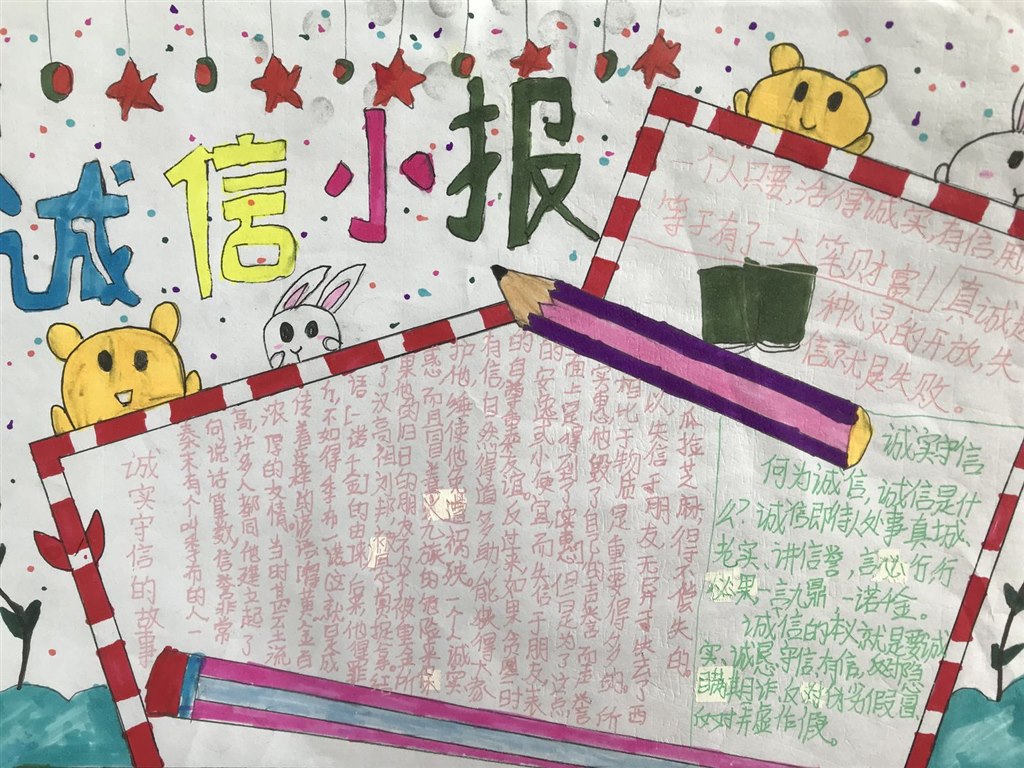 诚信小报
一个人只要,活得诚实,有信用
等于有了一大笔财富!/直诚是
种心灵的开放,失
信就是失败。
诚实守信的故事
秦末有个叫季布的人一
向说话算数信誉非常
高许多人都同他建立起了
浓厚的友情。当时甚至流
传着这样的谚语:"得黄金百
斤不如得季布一诺"这就是成
语"一诺千金"的由来。后来,他得罪
了汉高祖刘邦,被悬赏捉拿结
果他的旧日的朋友不仅不被重金所
惑而且冒着灭九族的危险来
护他,继使他免遭祸殃。一个人诚实
有信,自然得道多助,能获得大家
的自尊重和友谊。反过来如果贪图一时
的安逸或小便宜,而失信于朋友,表
面上是得到了"实惠"但是为了这点
实惠他毁了自己的声誉而声誉
相比于物质是重要得多的。所
以失信于朋友,无异于失去了西
瓜拉芝麻得不偿失的。
诚实守信
何为诚信,诚信是什
么?诚信即待人处事真城、
老实、讲信誉,言必行行
必果一言九鼎一诺千金。
诚信的本义就是要诚
实、诚恳、守信有信,反隐
瞒期诈、反对伪劣假冒
反对弄虚作假。